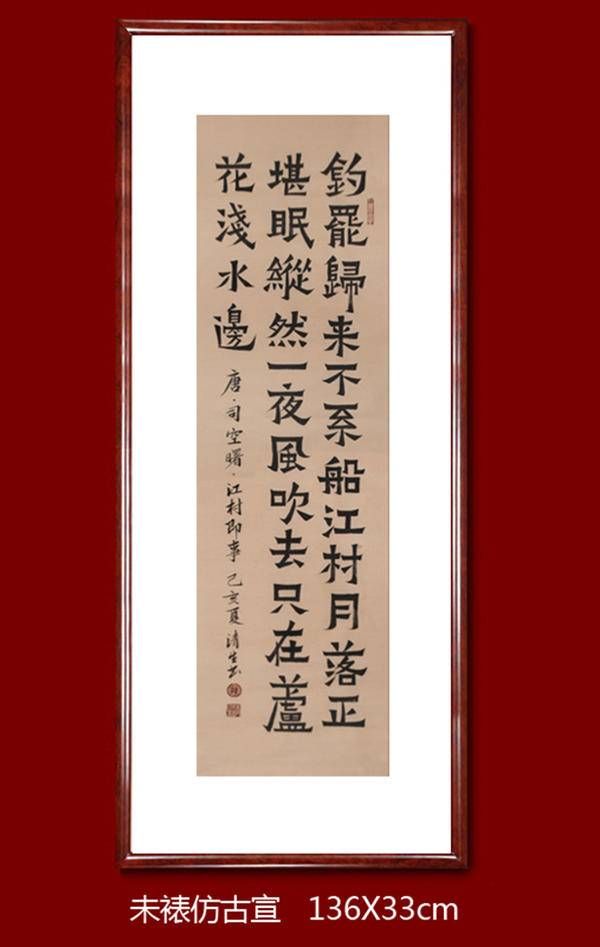 釣罷歸来不系船江村月落正
堪眠縱然一夜風吹去只在蘆
花淺水邊
唐·司空曙·江村即事 己亥夏 清生书
未裱仿古宣 136X33cm